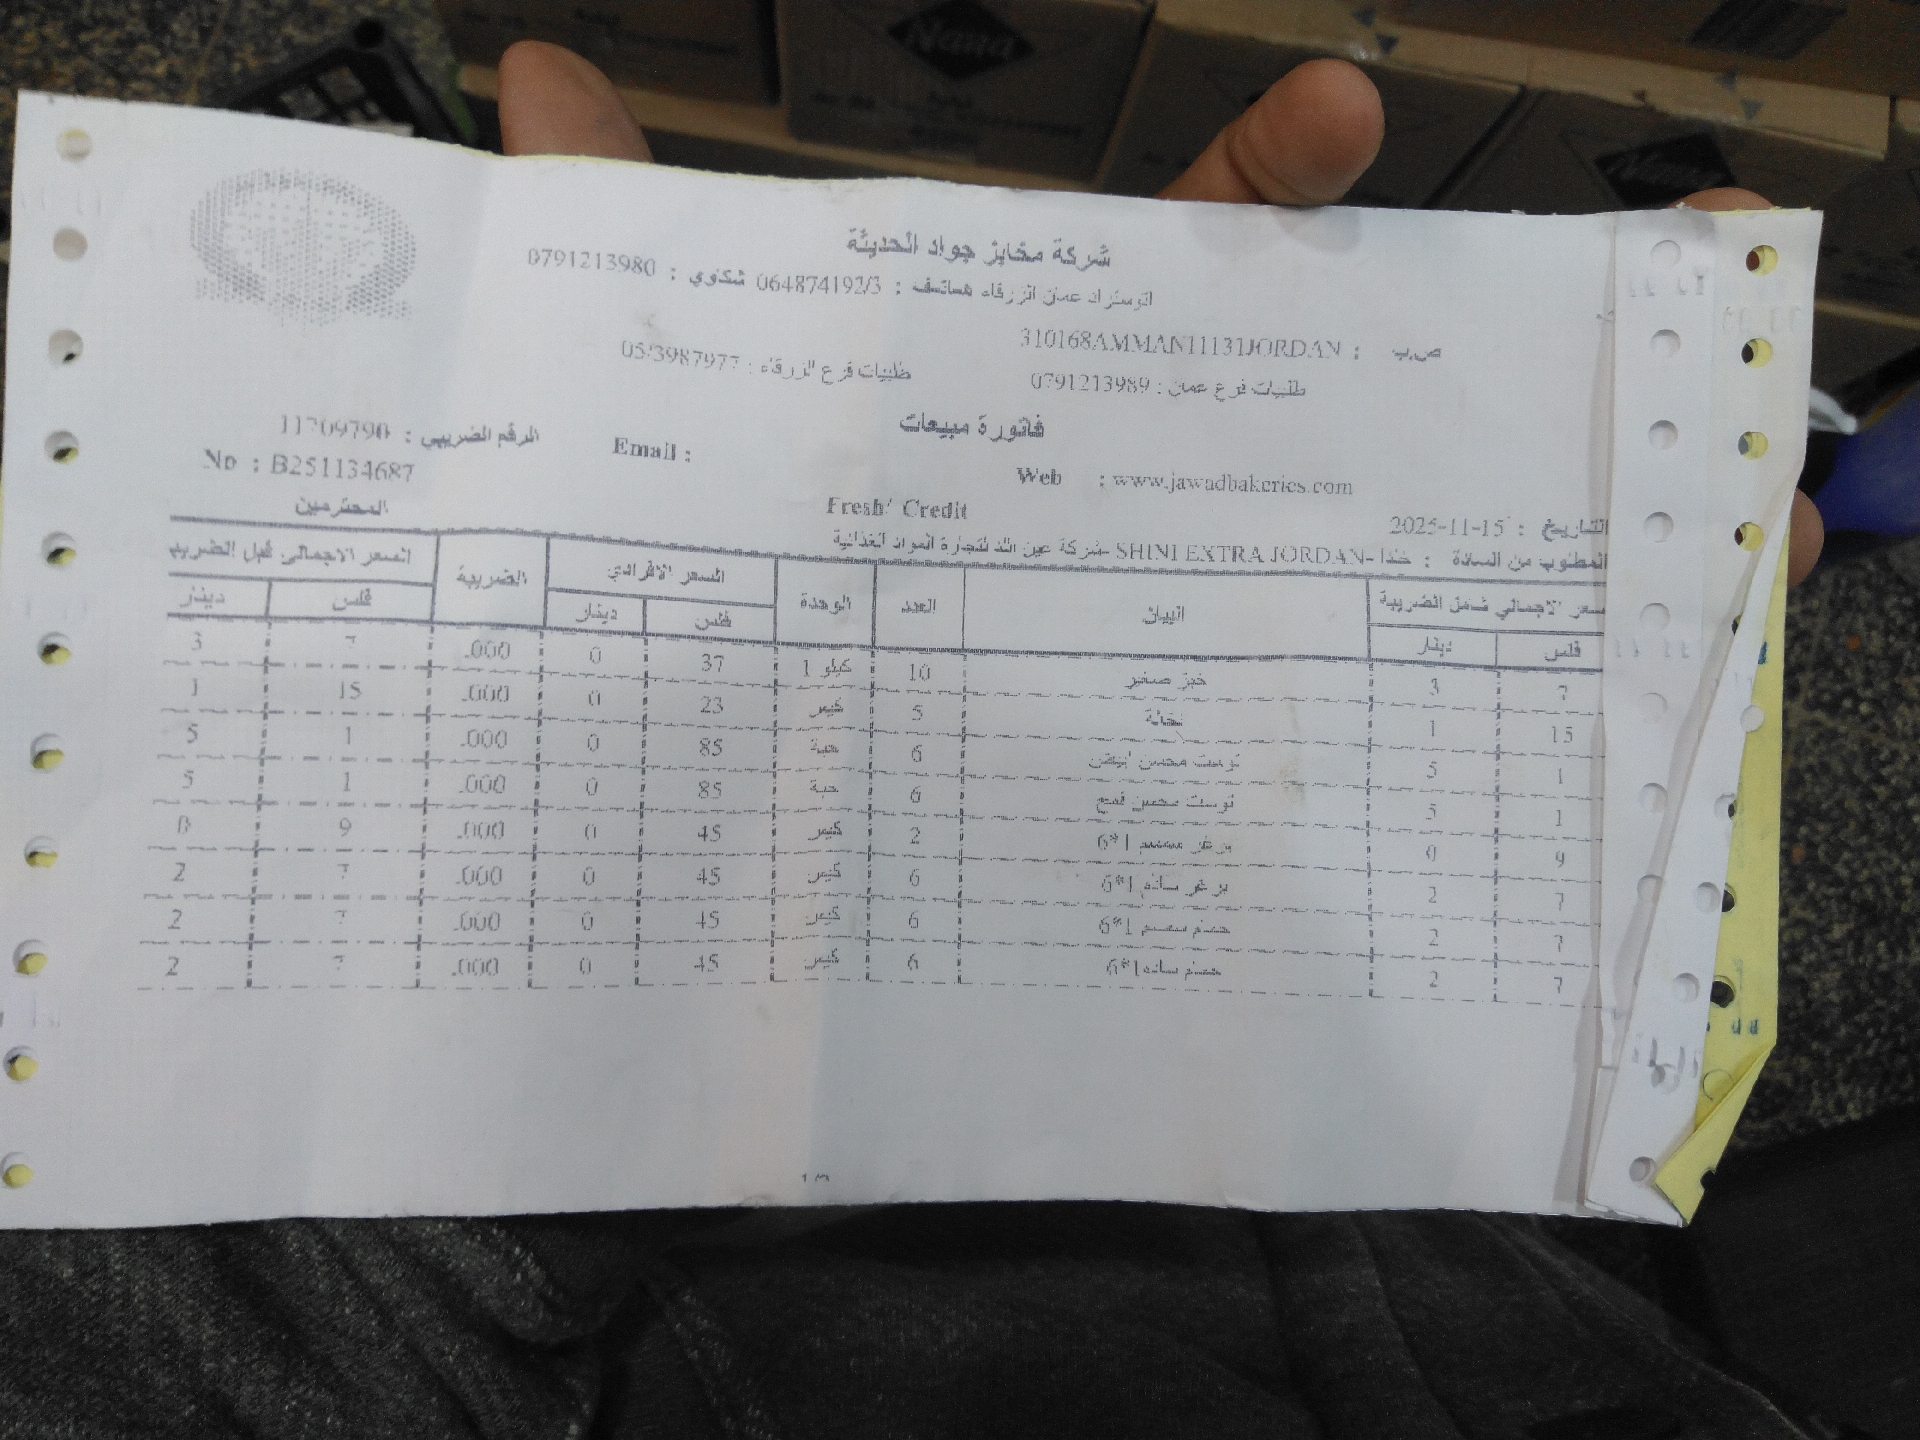 Nana
شركة مخابز جواد الحديثة
اتوستراد عمان الزرقاء هاتف : 064874192/3 شكاوي : 0791213980
ص.ب : 310168AMMAN11131JORDAN
طلبيات فرع عمان : 0791213989 طلبيات فرع الزرقاء : 05/3987977
فاتورة مبيعات
الرقم الضريبي : 11709790
Email :
Web : www.jawadbakeries.com
No : B251134687
Fresh/ Credit
التاريخ : 2025-11-15
المطلوب من السادة : خلدا -SHINI EXTRA JORDAN- شركة عين الله لتجارة المواد الغذائية المحترمين
سعر الاجمالي شامل الضريبة البيان العدد الوحدة السعر الافرادي الضريبة السعر الاجمالي قبل الضريبة
فلس دينار فلس دينار فلس دينار
7 3 خبز صغير 10 كيلو 1 37 0 .000 7 3
15 1 نخالة 5 كيس 23 0 .000 15 1
1 5 توست محسن ابيض 6 حبة 85 0 .000 1 5
1 5 توست محسن قمح 6 حبة 85 0 .000 1 5
9 0 برغر سمسم 1*6 2 كيس 45 0 .000 9 0
7 2 برغر ساده 1*6 6 كيس 45 0 .000 7 2
7 2 حمام سمسم 1*6 6 كيس 45 0 .000 7 2
7 2 حمام ساده 1*6 6 كيس 45 0 .000 7 2